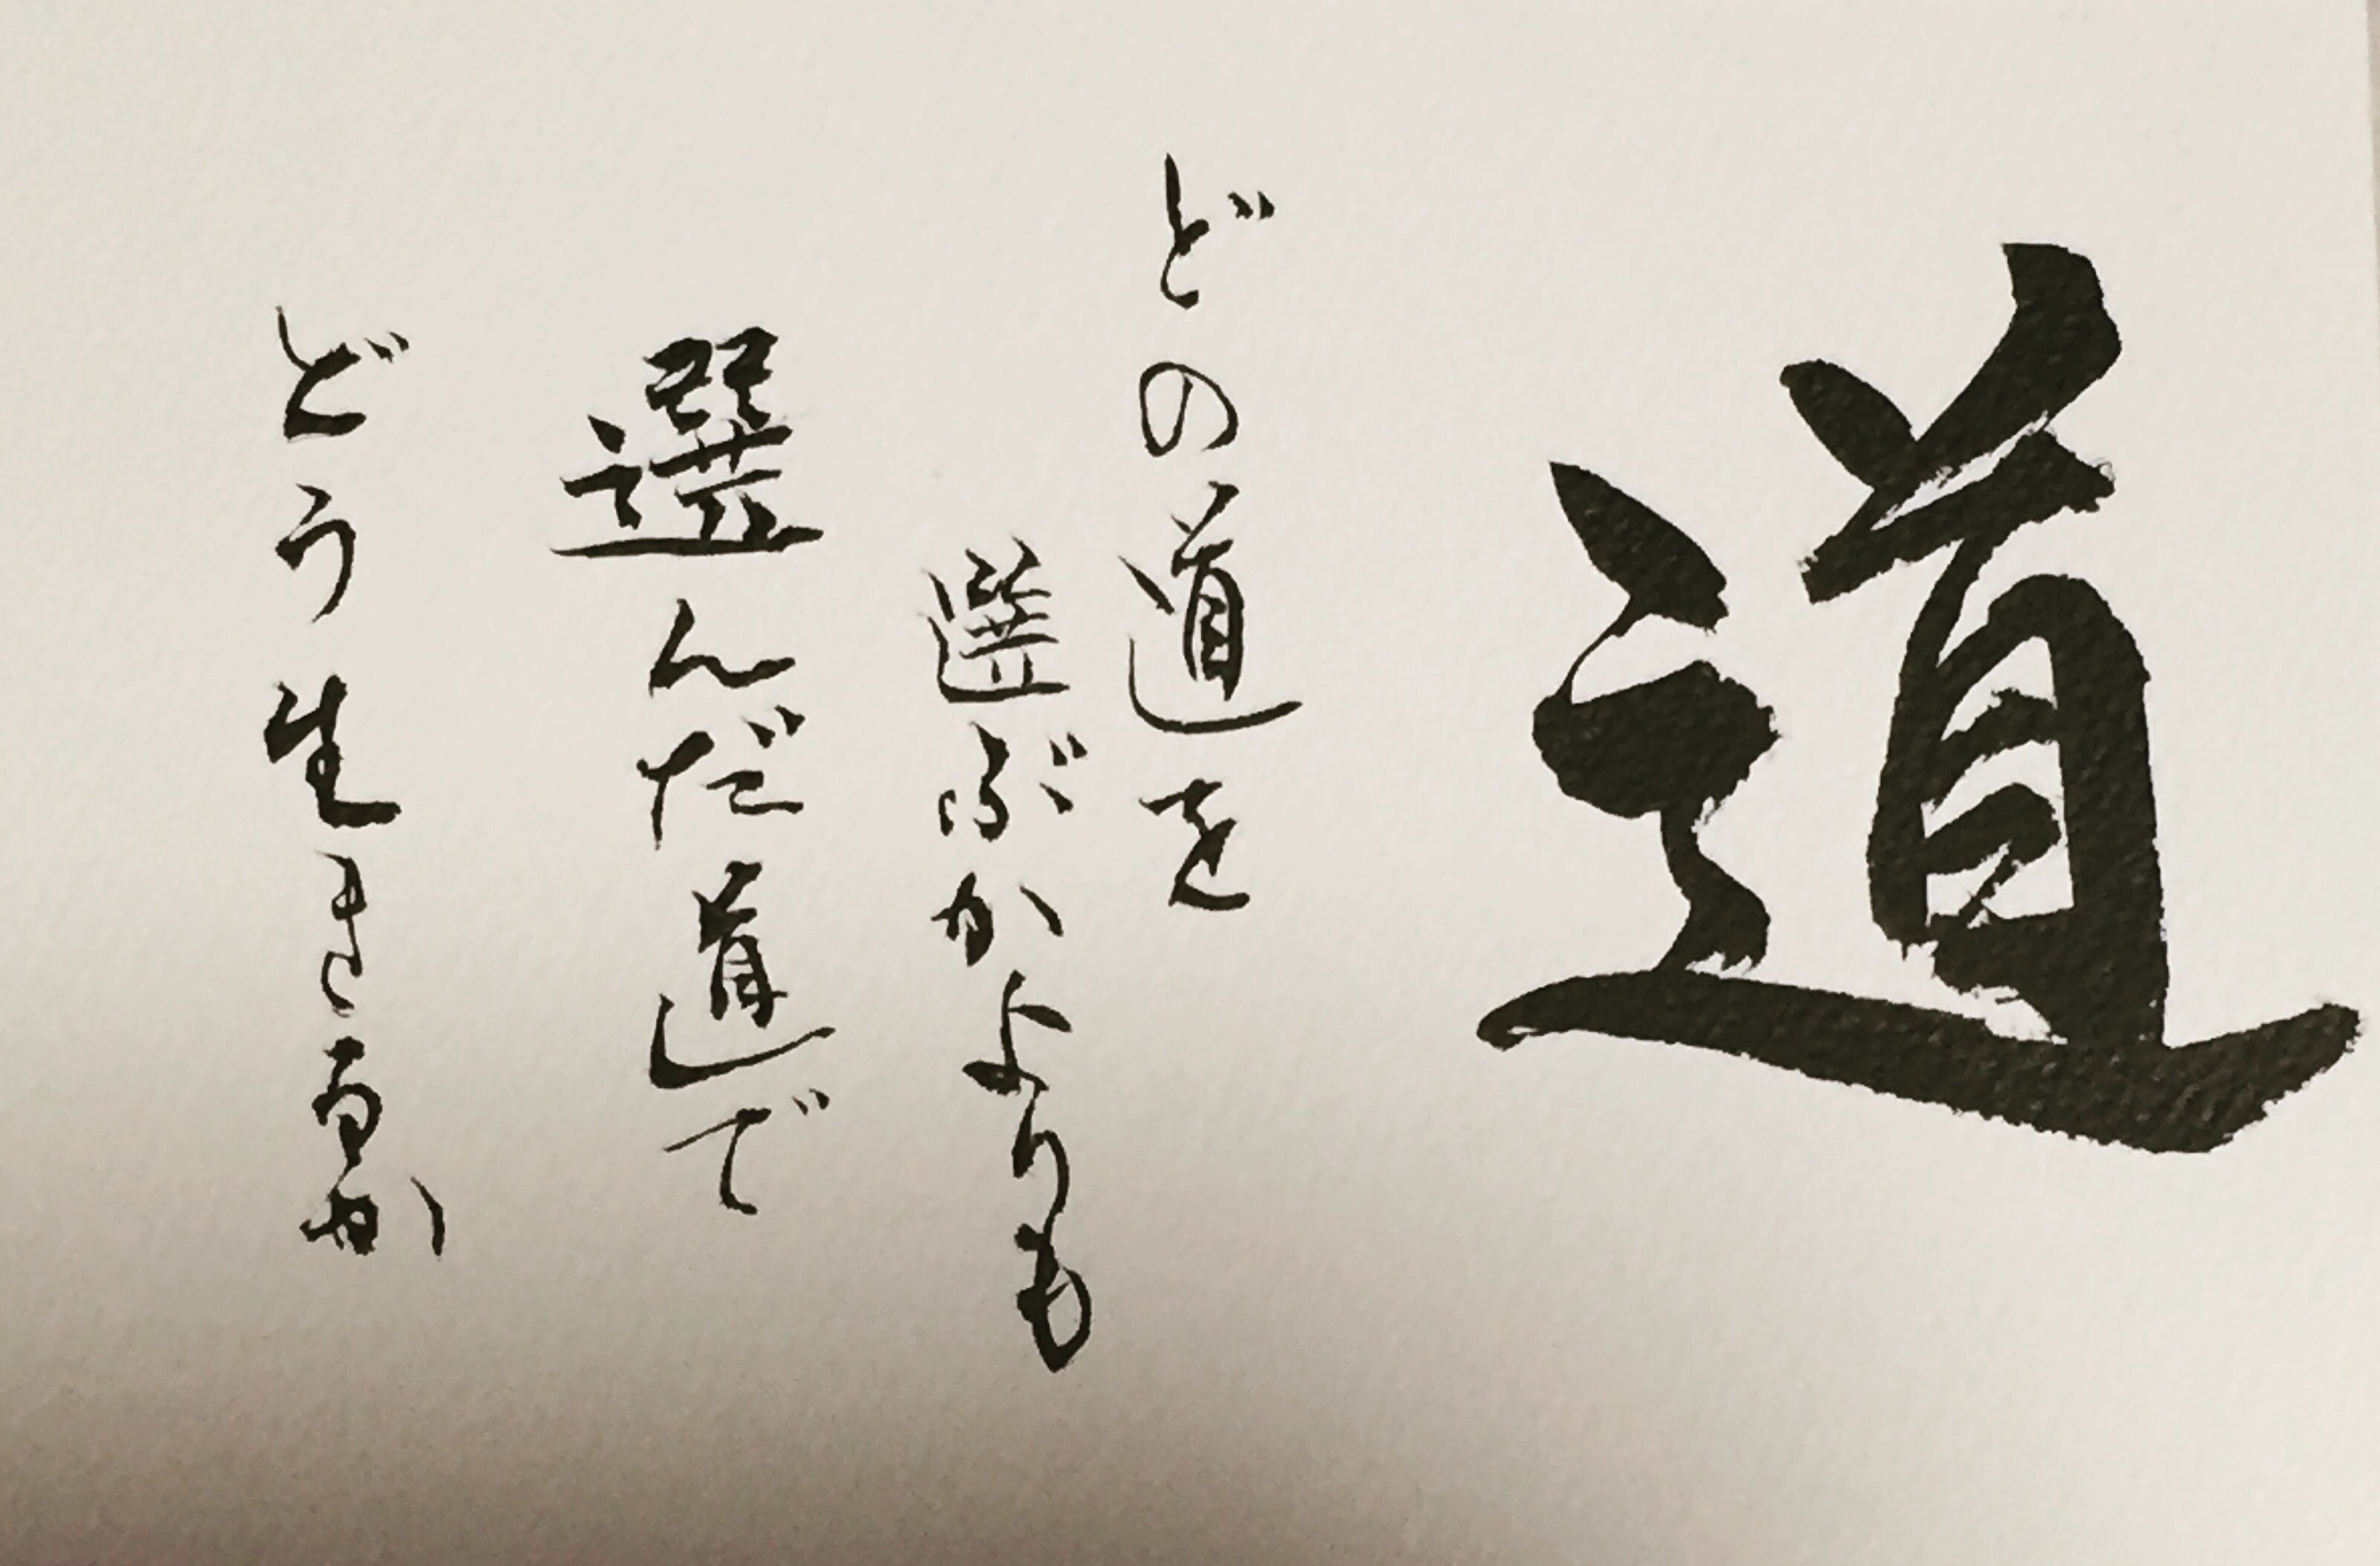 道
どの道を
選ぶかよりも
選んだ道で
どう生きるか